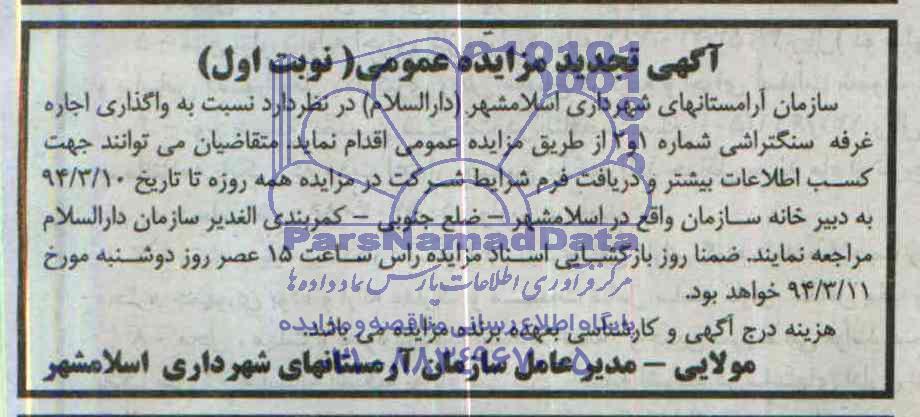 آگهی تجدید مزایده عمومی( نوبت اول)
سازمان آرامستانهای شهرداری اسلامشهر (دارالسلام) در نظردارد نسبت به واگذاری اجاره
غرفه سنگتراشی شماره ۱و۲ از طریق مزایده عمومی اقدام نماید. متقاضیان می توانند جهت
کسب اطلاعات بیشتر و دریافت فرم شرایط شرکت در مزایده همه روزه تا تاریخ ۹۴/۳/۱۰
به دبیر خانه سازمان واقع در اسلامشهر – ضلع جنوبی – کمربندی الغدیر سازمان دارالسلام
مراجعه نمایند. ضمنا روز بازگشایی اسناد مزایده راس ساعت ۱۵ عصر روز دوشنبه مورخ
۹۴/۳/۱۱ خواهد بود.
هزینه درج آگهی و کارشناسی بعهده برنده مزایده می باشد.
مولایی – مدیر عامل سازمان آرمستانهای شهرداری اسلامشهر
ParsNamadData
مرکز فرآوری اطلاعات پارس نماد داده ها
پایگاه اطلاع رسانی مناقصه و مزایده